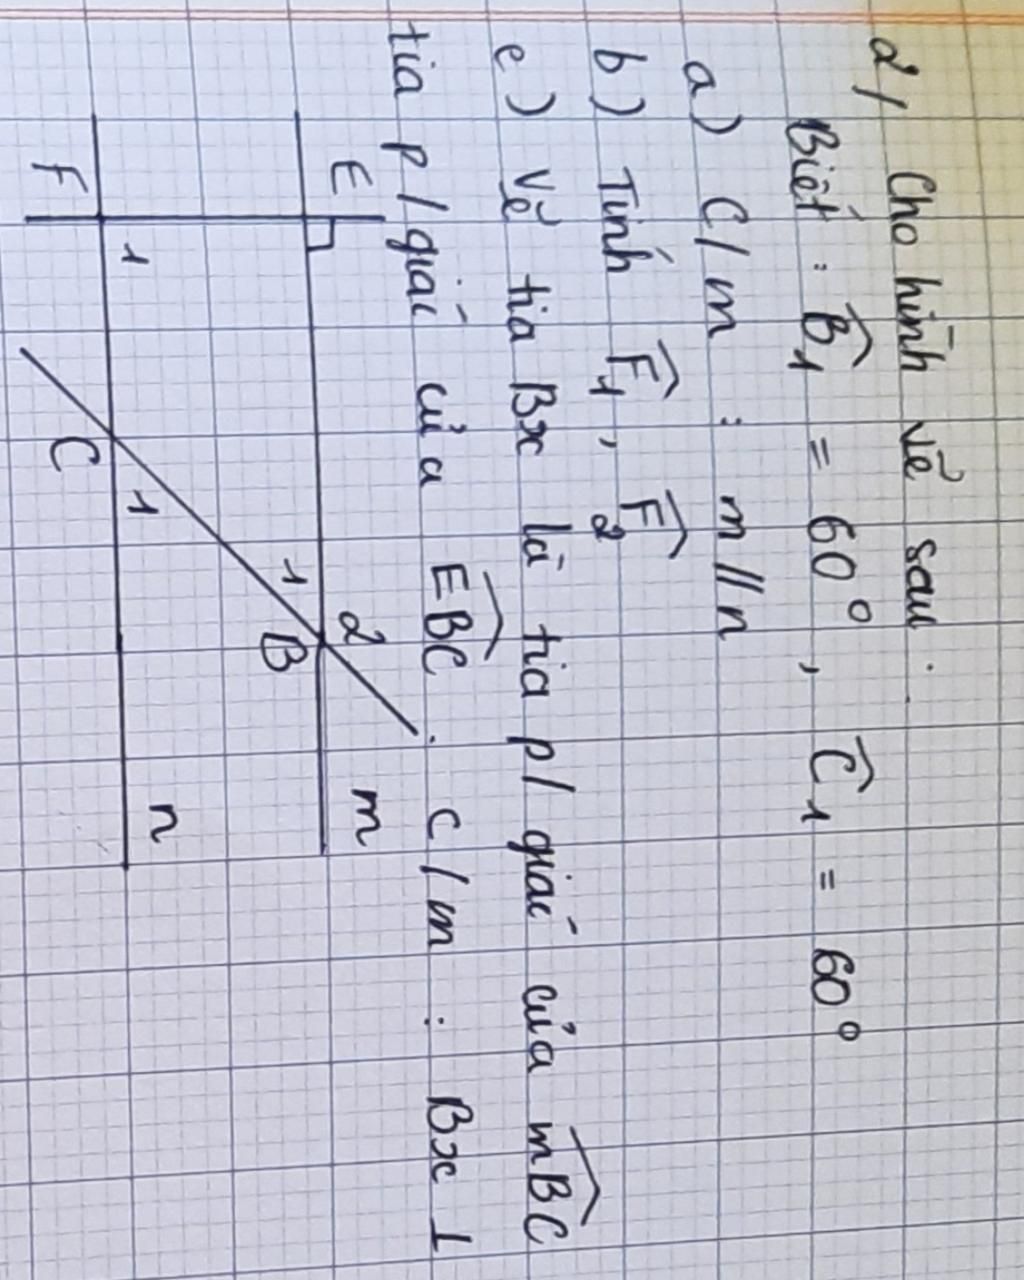 2/ Cho hình vẽ sau :
Biết : B̂₁ = 60° , Ĉ₁ = 60°
a) C/m : m // n
b) Tính F̂₁ , F̂₂
c) Vẽ tia Bx là tia p/giác của mBC
tia p/giác của EBC . C/m : Bx ⊥
E 2 m
1 B
F 1 1 n
C